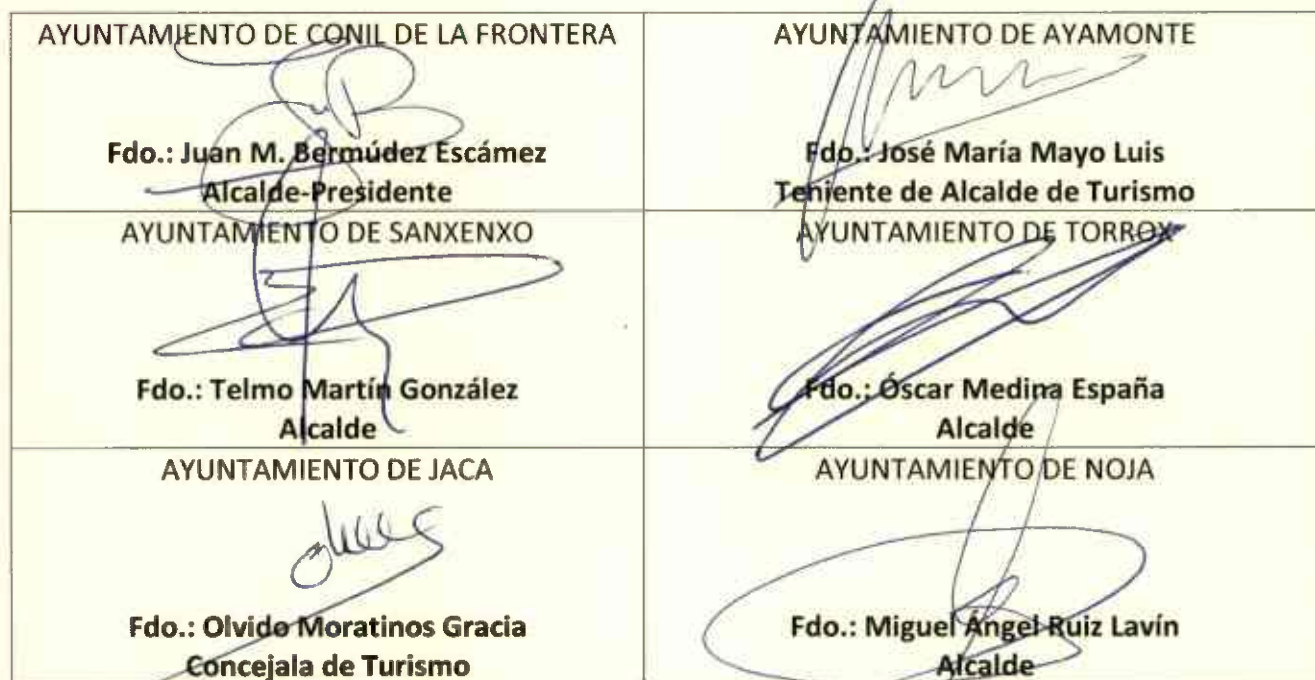 AYUNTAMIENTO DE CONIL DE LA FRONTERA
Fdo.: Juan M. Bermúdez Escámez
Alcalde-Presidente
AYUNTAMIENTO DE AYAMONTE
Fdo.: José María Mayo Luis
Teniente de Alcalde de Turismo
AYUNTAMIENTO DE SANXENXO
Fdo.: Telmo Martín González
Alcalde
AYUNTAMIENTO DE TORROX
Fdo.: Óscar Medina España
Alcalde
AYUNTAMIENTO DE JACA
Fdo.: Olvido Moratinos Gracia
Concejala de Turismo
AYUNTAMIENTO DE NOJA
Fdo.: Miguel Ángel Ruiz Lavín
Alcalde